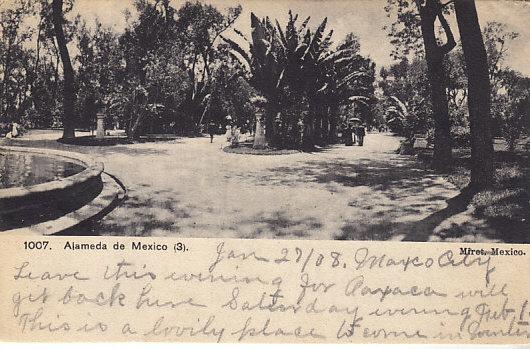 1007. Alameda de Mexico (3).
Miret. Mexico.
Jan 27/08. Maxco City
Leave this evening for Oaxaca will
get back here Saturday evening Feb. 1st
This is a lovily place to come in Winter